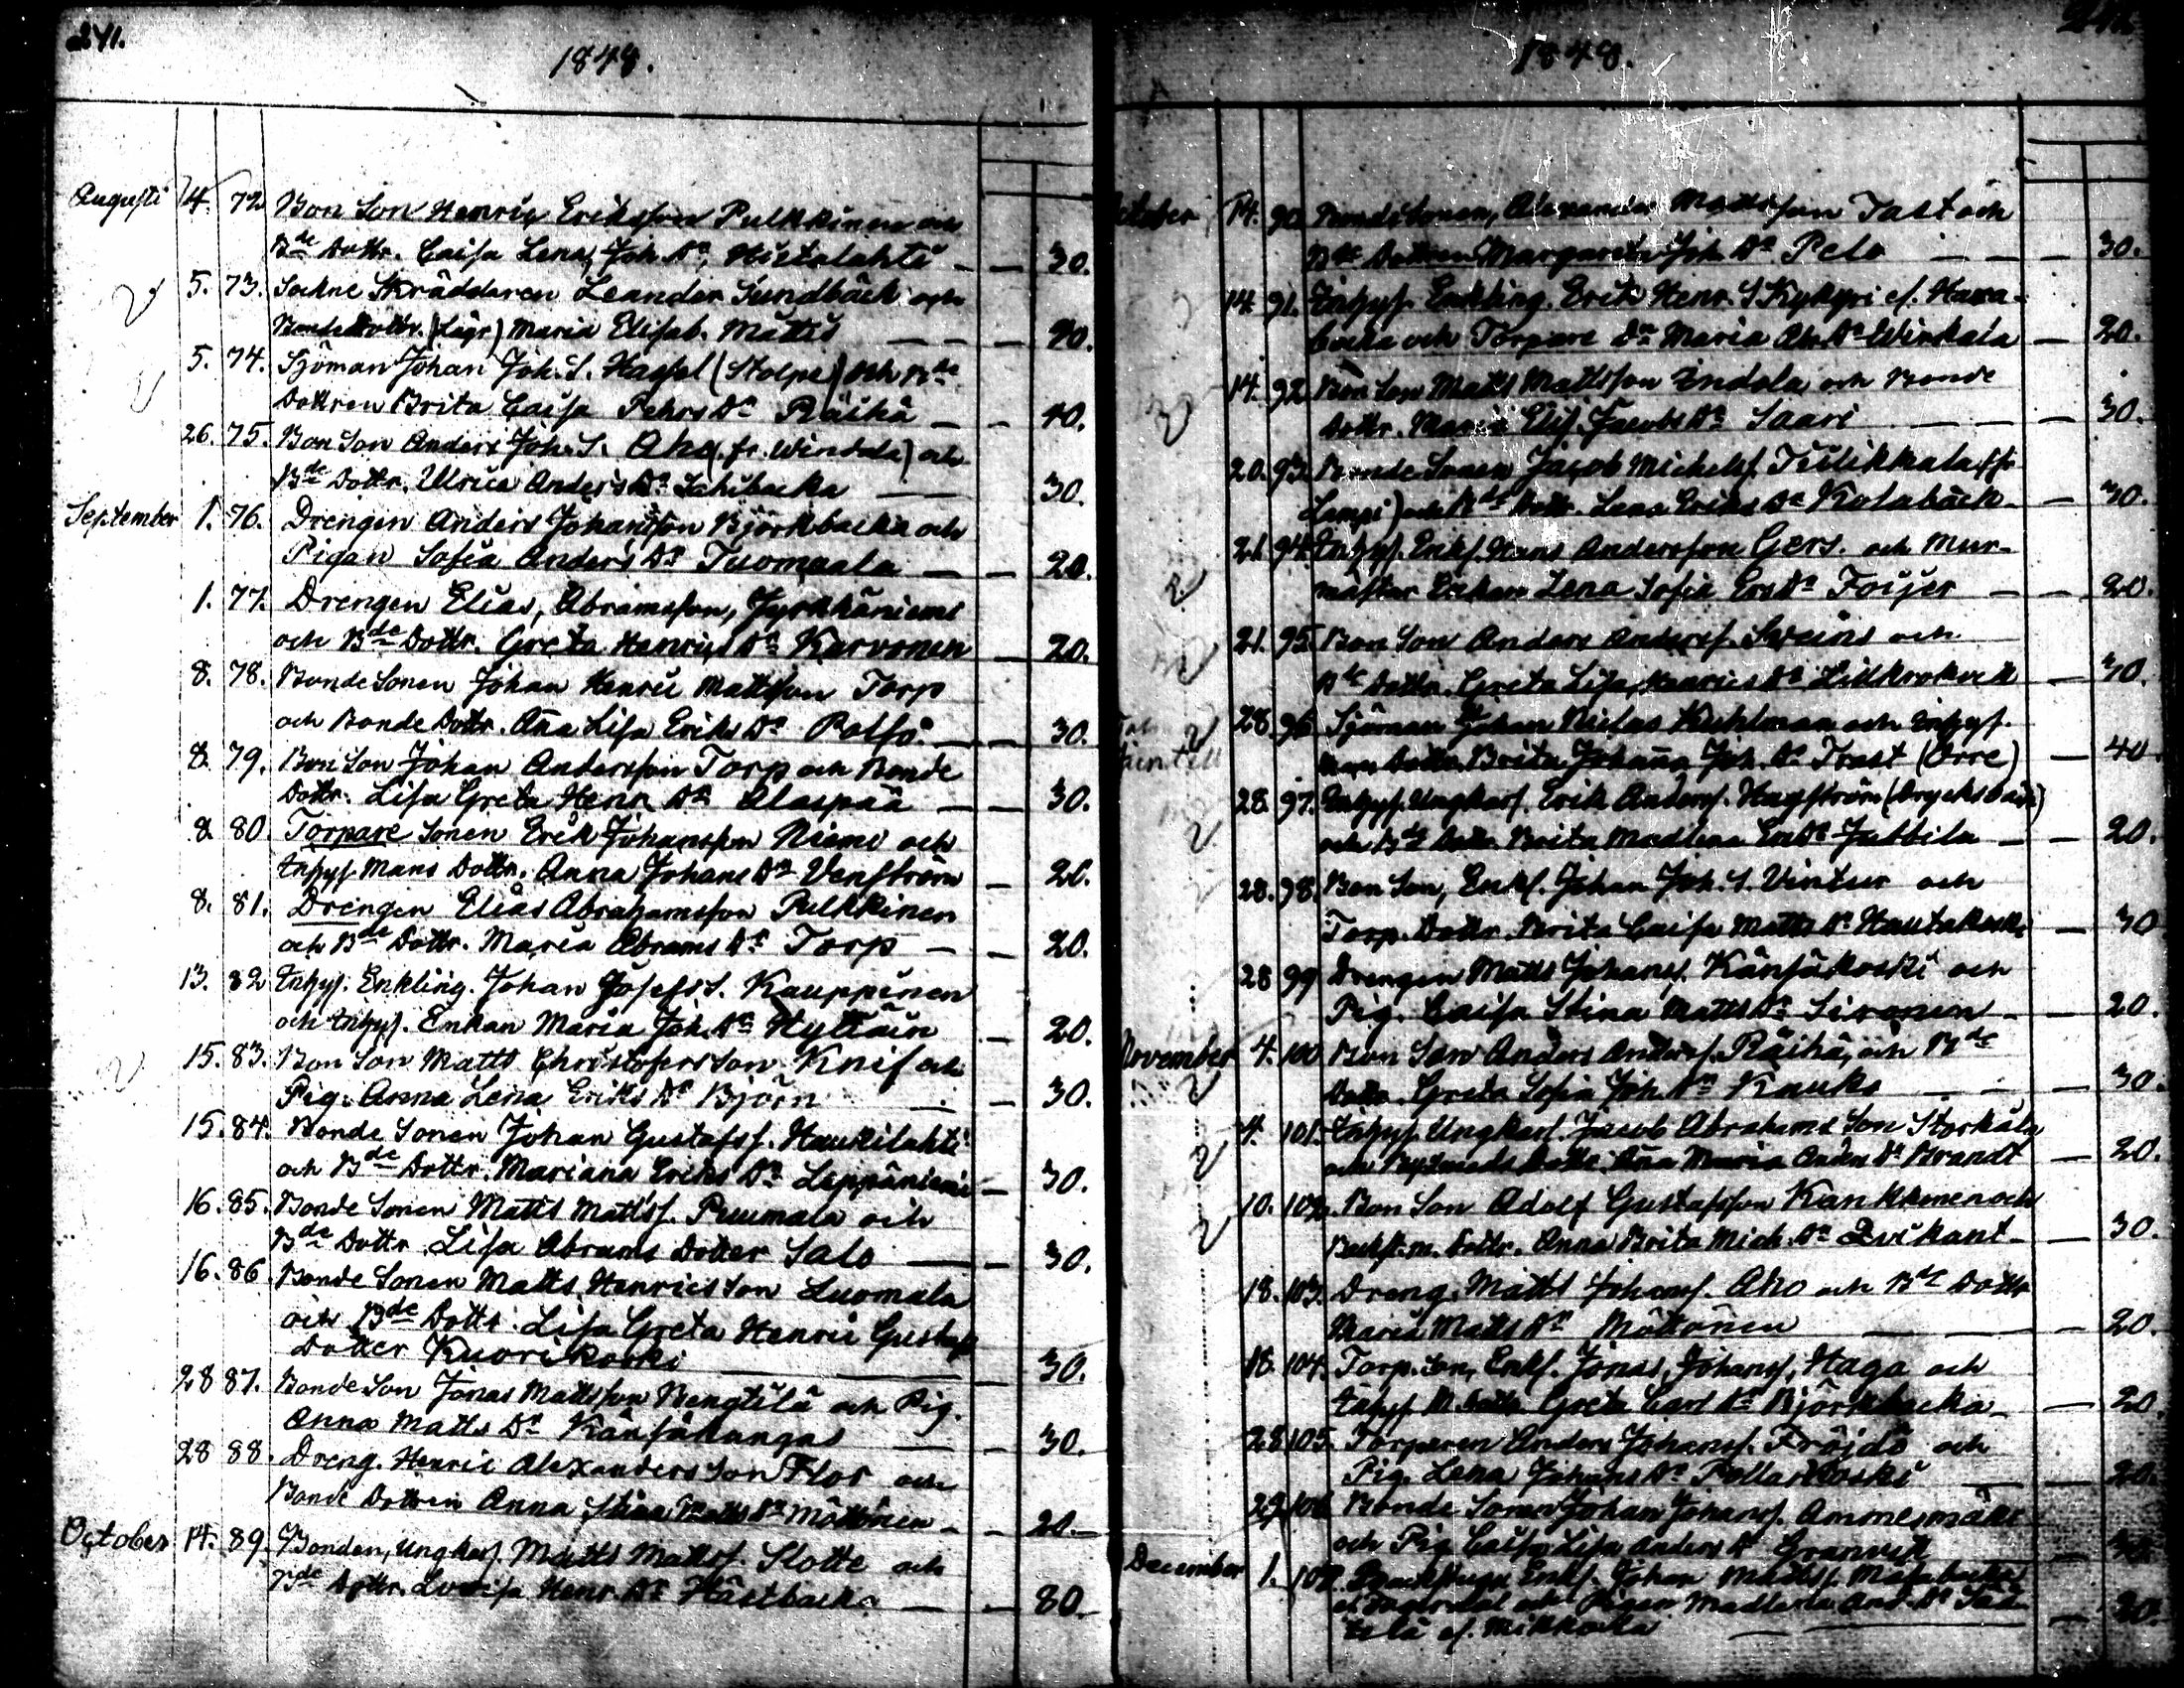 241.
1848.
Augusti 4. 72. Bon Son Henric Eriksson Pulkkinen och
Bde Dottr. Caisa Lena, Joh. Dr, Hietalahti — — 30.
5. 73. Sockne Skrädderen Leander Sundbäck och
Bonde Dottr. (Lägr) Maria Elisab. Matts — — 20.
5. 74. Sjöman Johan Joh. S. Hassel (Stolpe) och Bde
Dottren Brita Caisa Pehrs Dr Räihä — — 40.
26. 75. Bon Son Anders Joh. S. Aho (fr. Windala) och
Bde Dottr. Ulrica Anders Dr Schibacka — 30.
September 1. 76. Drengen Anders Johansson Björkbacka och
Pigan Sofia Anders Dr Tuomaala — — 20.
1. 77. Drengen Elias, Abramsson, Jyrkkäniemi
och Bde Dottr. Greta Henrics Dr Karvonen — 20.
8. 78. Bonde Sonen Johan Henric Mattsson Torp
och Bonde Dottr. Ana Lisa Eriks Dr Rolfs. — — 30.
8. 79. Bon Son Johan Andersson Torp och Bonde
Dottr. Lisa Greta Henr. Dr Alaspää — — 30.
8. 80. Torpare Sonen Erik Johansson Niemi och
Inhys. Mans Dottr. Anna Johans Dr Venström — 20.
8. 81. Drengen Elias Abrahamsson Pulkkinen
och Bde Dottr. Maria Abrams Dr Torp — — 20.
13. 82. Inhys. Enkling. Johan Josefs S. Kauppinen
och Inhys. Enkan Maria Joh. Dr Hyttäin — 20.
15. 83. Bon Son Matts Christophers Son Knif och
Pig. Anna Lena Eriks Dr Björn — 30.
15. 84. Bonde Sonen Johan Gustafss. Haukilahti
och Bde Dottr. Mariana Eriks Dr Leppäniemi — 30.
16. 85. Bonde Sonen Matts Mattss. Puumala och
Bde Dottr Lisa Abrams Dotter Salo — — 30.
16. 86. Bonde Sonen Matts Henrics Son Luomala
och Bde Dottr. Lisa Greta Henric Gustafs
Dotter Kuorikoski — 30.
28 87. Bonde Son Jonas Mattsson Bengtilä och Pig.
Anna Matts Dr Känsäkangas — — 30.
28 88. Dreng. Henric Alexanders Son Flor och
Bonde Dottren Anna Stina Matts Dr Möttönen — — 20.
October 14. 89. Bonden, Ungkarl Matts Mattss. Slotte och
Bde Dottr. Lovisa Henr. Dr Hästbacka — — 80.
1848.
October 14. 90. Bonde Sonen, Alexander Mattsson Tast och
Bde Dottren Margareta Joh. Dr Pelo — — 30.
14. 91. Inhys. Enkling. Erik Henr. S Kykyri el. Hara-
backa och Torpare Dr Maria Abr. Dr Wirkala — 20.
14. 92. Bon Son Matts Mattsson Indola och Bonde
Dottr. Maria Elis. Jacobs Dr Saari — — 30.
20. 93. Bonde Sonen Jacob Michelss. Tiilikkala (fr.
Lampi) och Bde Dottr. Lena Eriks Dr Kolabäck — 30.
21. 94. Inhys. Enkl. Hans Andersson Gers. och Mur-
mästar Enkan Lena Sofia Ers Dr Foijer — — 20.
21. 95. Bon Son Anders Anderss. Sveins och
Bde Dottr. Greta Lisa Henrics Dr Lillkrokvik — 30.
28. 96. Sjöman Johan Niclas Kuhlman och Inhys.
Mans Dottr. Brita Johanna Joh. Dr Trast (Orre) — 40.
28. 97. Inhys. Ungkarl. Erik Anderss. Hagström (Drycksbäck)
och Bde Dottr. Brita Madlena Ers Dr Jubbila — — 20.
28. 98. Bon Son, Enkl. Johan Joh. S. Vintur och
Torp. Dottr. Brita Caisa Matts Dr Hautakoski — 30
28 99 Drengen Matts Johanss. Känsäkoski och
Pig. Caisa Stina Matts Dr Sironen — — 20.
November 4. 100. Bon Son Anders Anderss. Räihä, och Bde
Dottr. Greta Sofia Joh. Dr Kauko — — 30.
4. 101. Inhys. Ungkarl. Jacob Abrahams Son Storkåla
och Dottr. Ana Maria Anders Dr Brandt — 20.
10. 102. Bon Son Adolf Gustafsson Kankkonen och
Backst. m. Dottr. Anna Brita Mich. Dr Qvikant — — 30.
18. 103. Dreng. Matts Johanss. Aho och Bde Dottr
Maria Matts Dr Möttönen — — 20.
18. 104. Torp. Son, Enkl. Jonas, Johanss. Haga och
Inhys M. Dottr. Greta Carl Dr Björkbacka — — 20
28 105. Torparen Anders Johanss. Fröjdö och
Pig. Lena Johans Dr Pollarikoski — 20.
29 106. Bonde Sonen Johan Johanss. Ammesmäki
och Pig. Caisa Lisa Anders Dr Granvik — 30.
December 1. 107. Enkl. Johan Mattss.
och Pigan Madlena And. Dr
el. Mikkola — — 20.